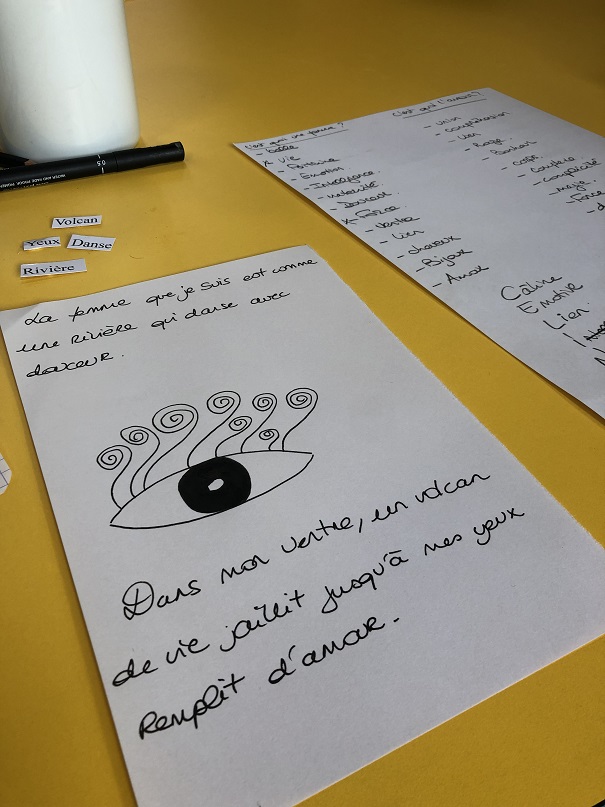 Volcan
Yeux
Danse
Rivière
La femme que je suis est comme
une Rivière qui danse avec
douceur.
Dans mon ventre, un volcan
de vie jaillit jusqu'à mes yeux
Remplit d'amour.
C'est quoi une femme ?
- Vie
- Emotion
- Intelligence
- maternité
- Douceur
- Force
- Ventre
- Lien
- cheveux
- Bijoux
- Amour
C'est quoi l'amour ?
- compréhension
- Lien
- Rouge
- Bonheur
- complicité
- magie
- Force
Câline
Emotive
Lien
0.5